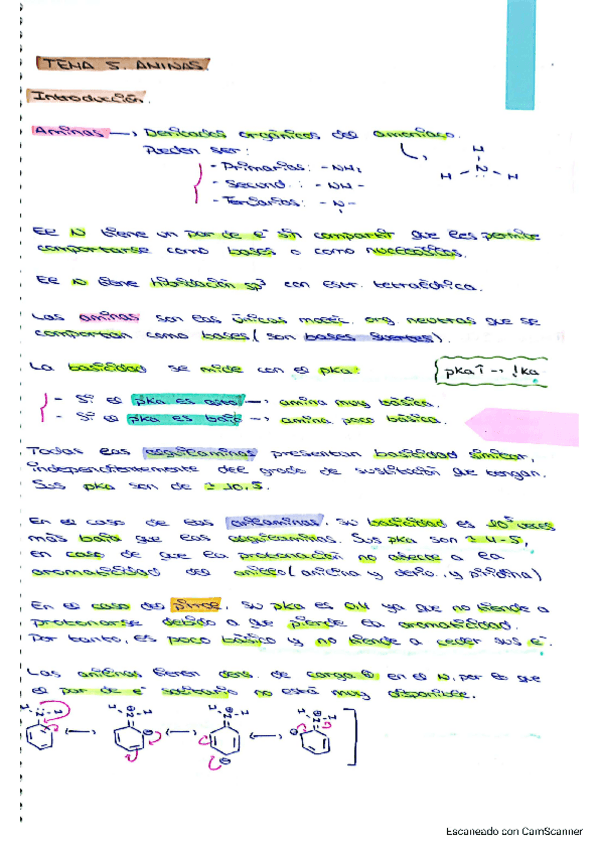 TEMA 5. AMINAS.
Introducción.
Aminas → Derivados orgánicos del amoniaco.
Pueden ser:
- Primarias: -NH₂
- Second.: -NH-
- Terciarias: -N-
H
H - N - H
El N tiene un par de e⁻ sin compartir que les permite
comportarse como bases o como nucleófilos.
El N tiene hibridación sp³ con estr. tetraédrica.
Las aminas son las únicas moléc. org neutras que se
comportan como bases (son bases fuertes).
La basicidad se mide con el pka:
pka↑ → ↓ka
- Si el pka es alto → amina muy básica.
- Si el pka es bajo → amina poco básica.
Todas las alquilaminas presentan basicidad similar,
independientemente del grado de sustitución que tengan.
Sus pka son de ≥ 10,5.
En el caso de las arilaminas, su basicidad es 10⁵ veces
más baja que las alquilaminas. Sus pka son ≥ 4-5,
en caso de que la protonación no afecte a la
aromaticidad del anillo (anilina y deriv. y piridina)
En el caso del pirrol, su pka es 0,4 ya que no tiende a
protonarse debido a que pierde la aromaticidad.
Por tanto, es poco básico y no tiende a ceder sus e⁻.
Las anilinas tienen dens. de carga ⊕ en el N, por lo que
el par de e⁻ solitario no está muy disponible.
Escaneado con CamScanner